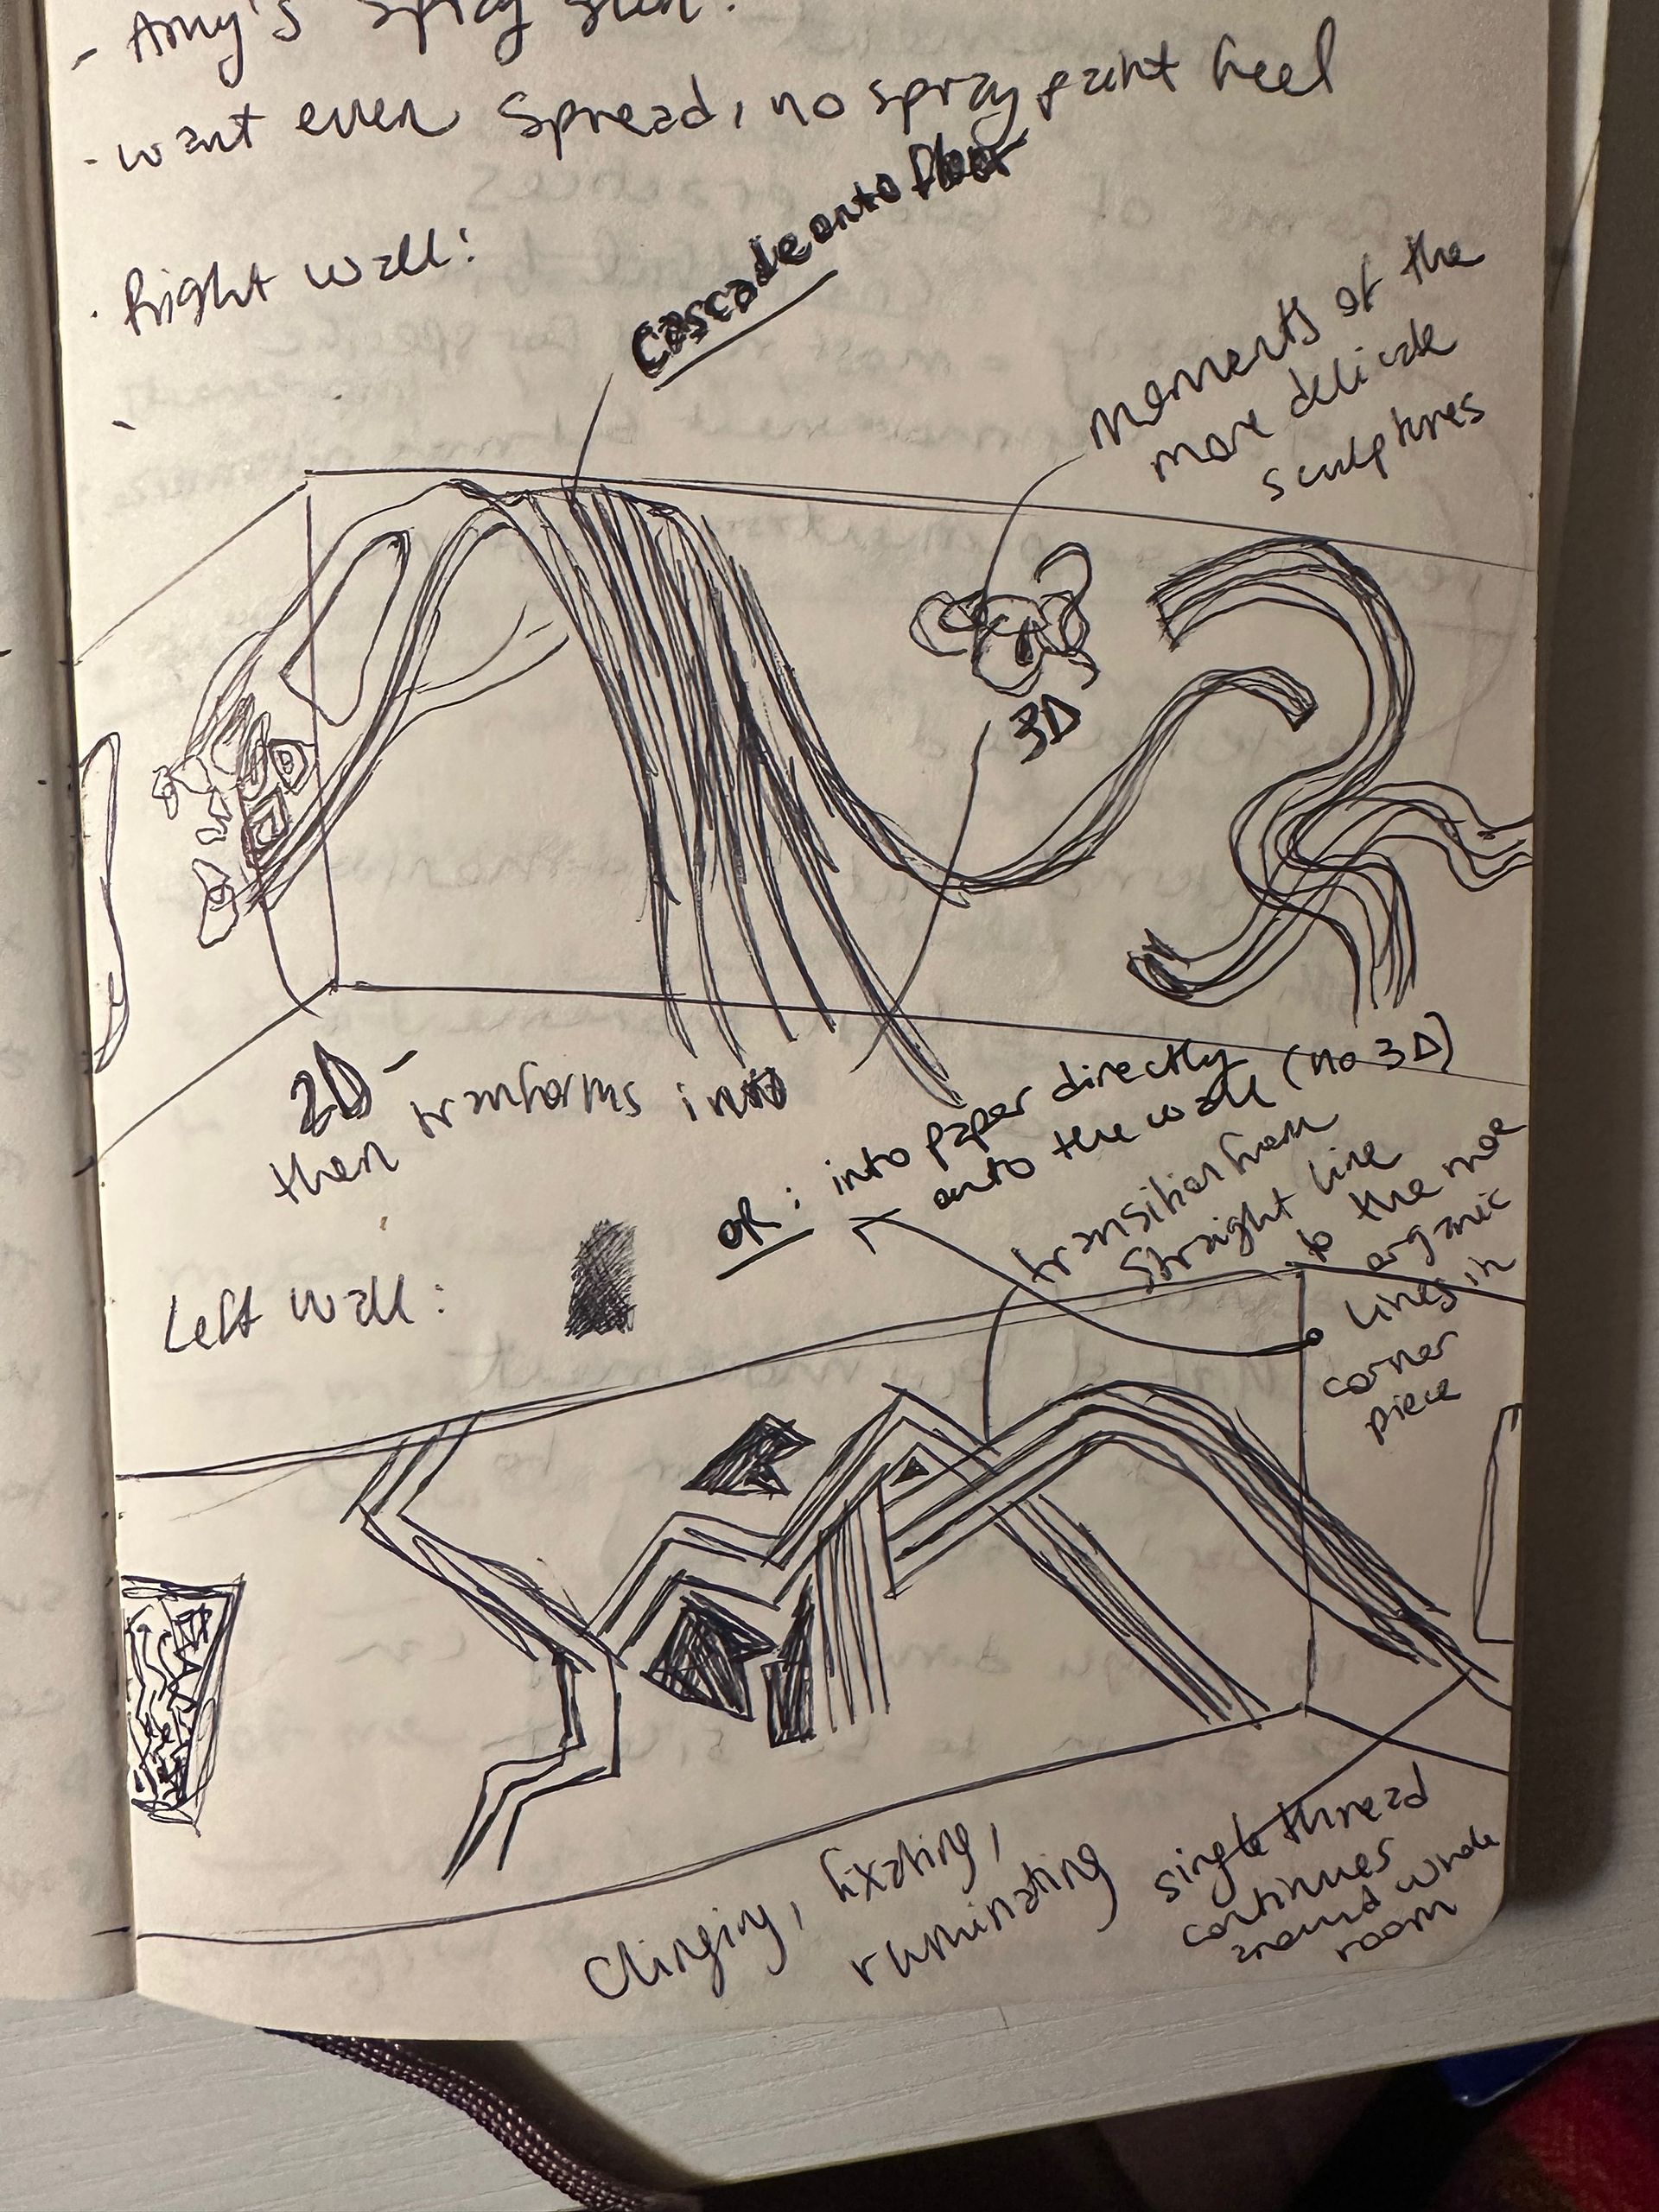 - Amy's spray
- want even spread, no spray paint feel
. Right wall:
Cascade onto floor
moments of the
more delicate
sculptures
3D
2D -
then transforms into
OR: into paper directly
onto the wall (no 3D)
transition from
straight line
to the more
organic
lines in
corner
piece
Left wall:
Clinging, fixating,
ruminating
single thread
continues
around whole
room